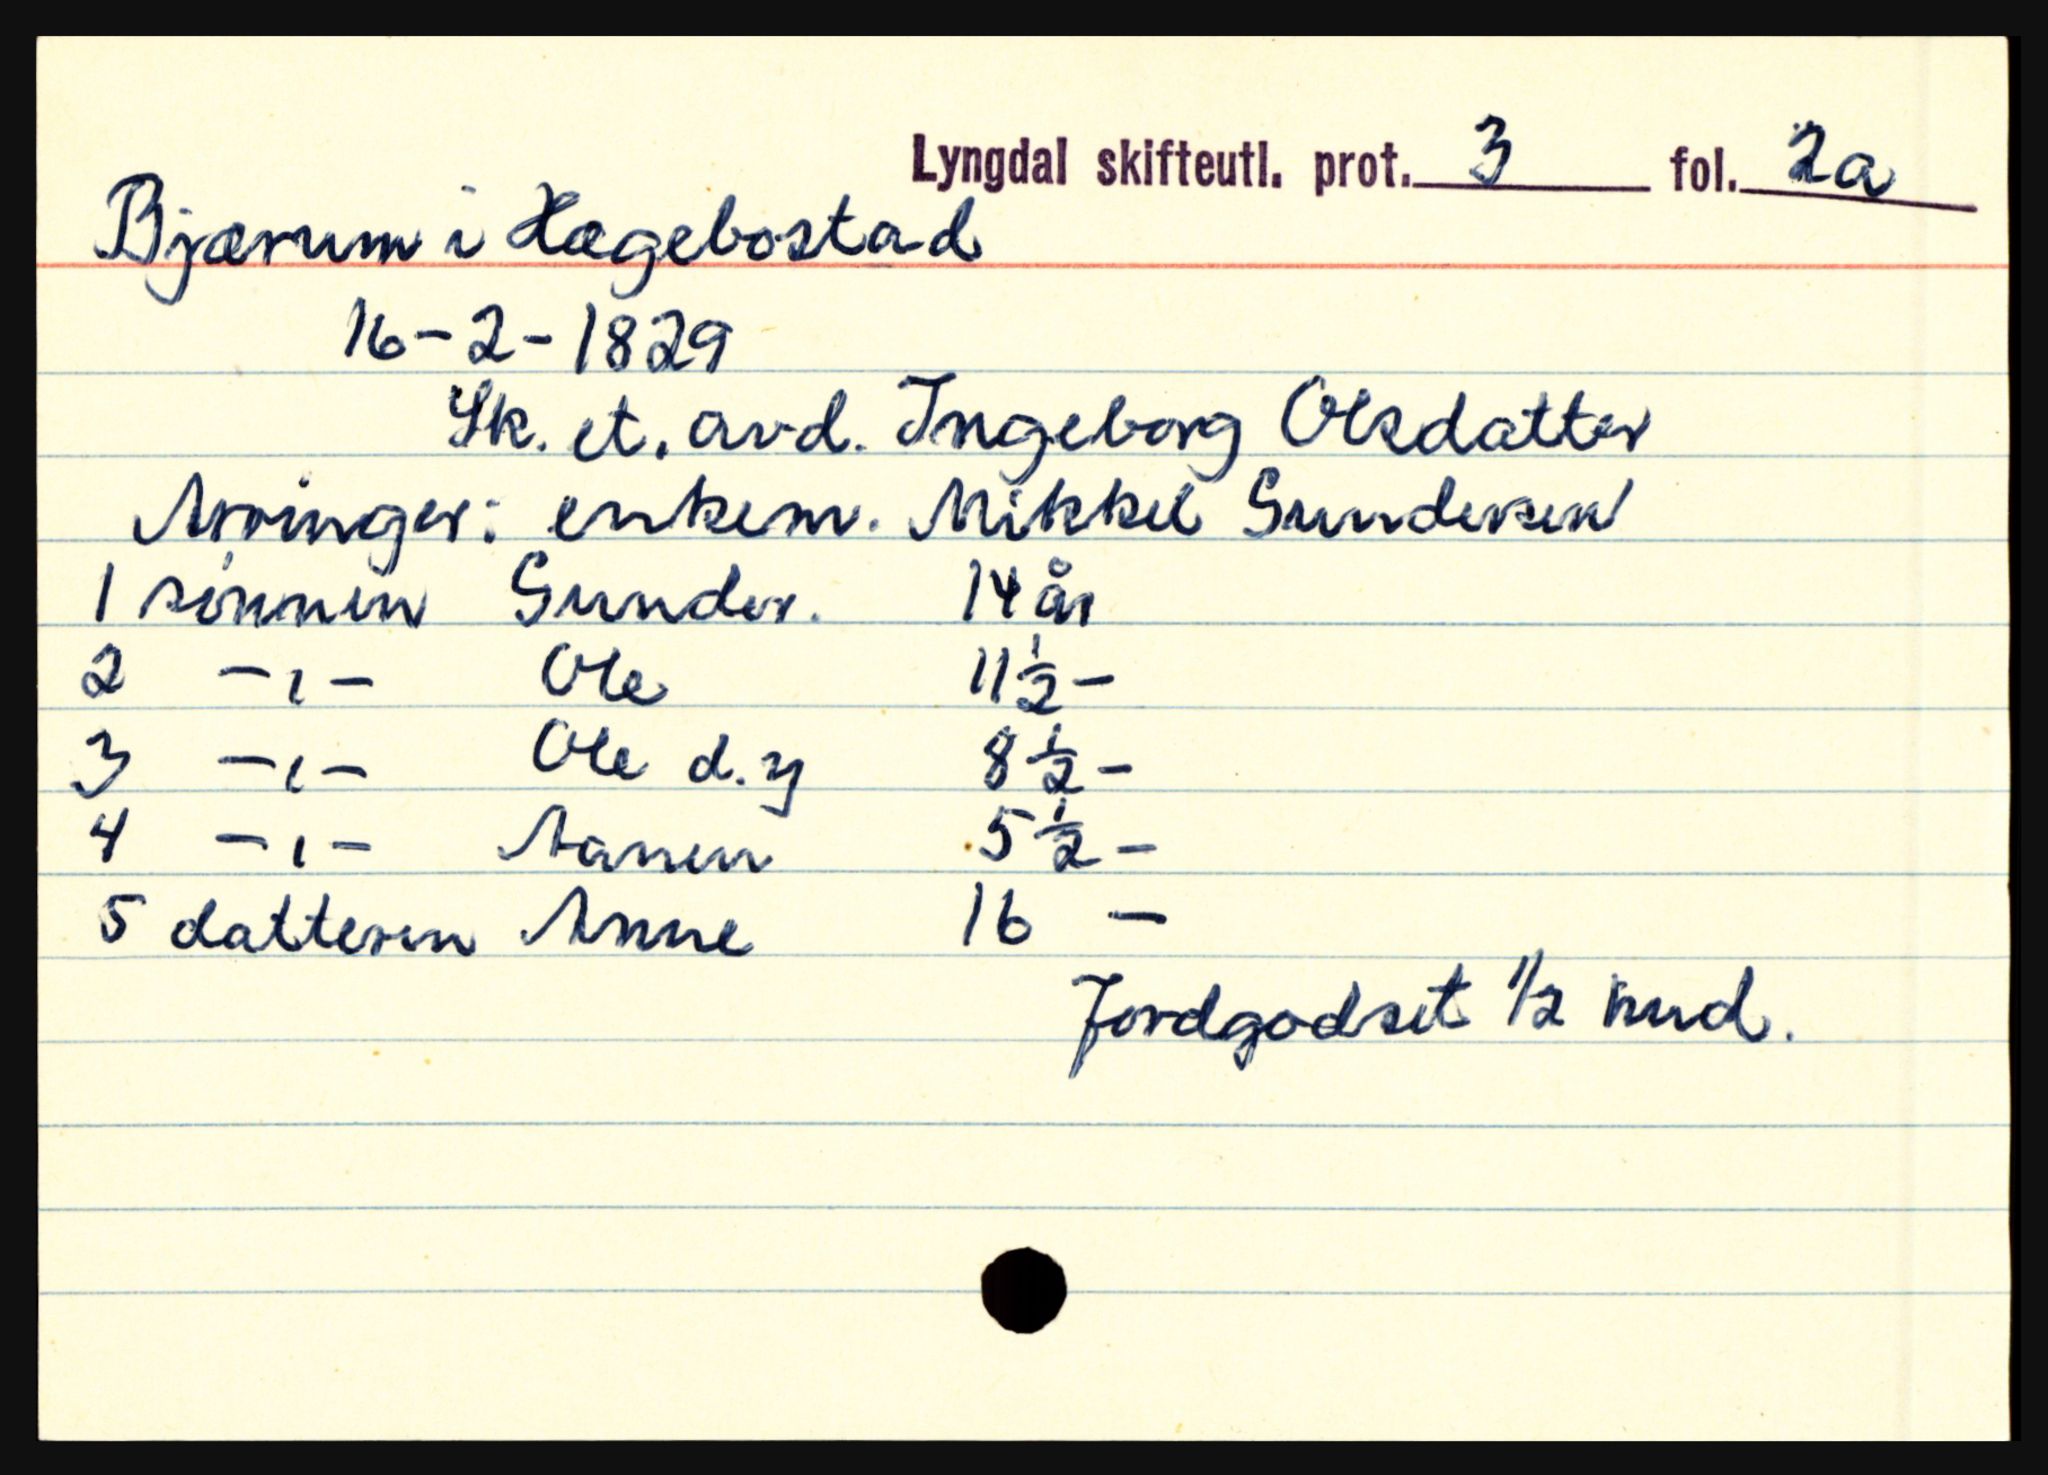 Lyngdal skifteutl. prot. 3 fol. 2a
Bjærum i Hægebostad
16-2-1829
Sk. et. avd. Ingeborg Olsdatter
Arvinger: enkem. Mikkel Gundersen
1 sønnen Gunder. 14 år
2 -"- Ole 11 1/2 -
3 -"- Ole d.y 8 1/2 -
4 -"- Aanen 5 1/2 -
5 datteren Anne 16 -
Jordgodset 1/2 hud.